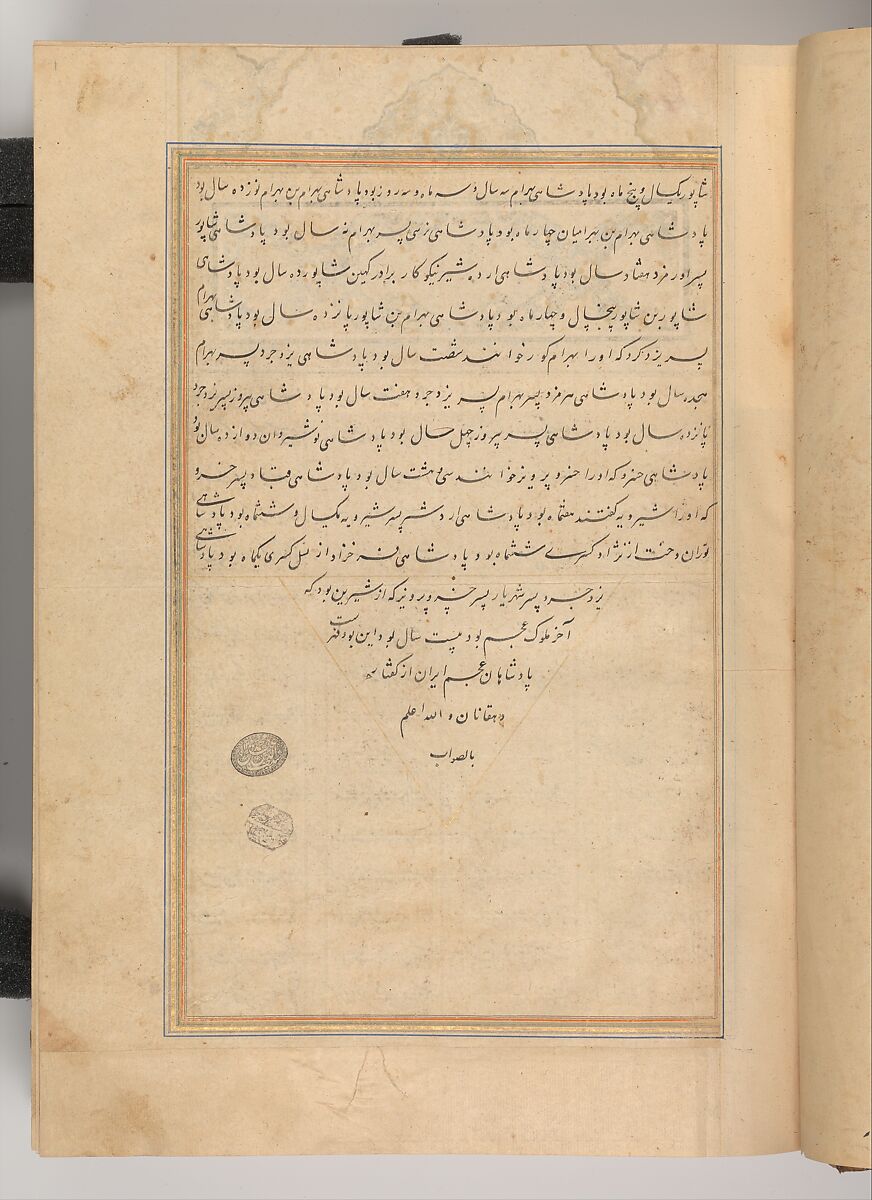 شاپور یکسال و پنج ماه بود پادشاهی بهرام سه سال و سه ماه و سه روز بود پادشاهی بهرام بن بهرام نوزده سال بود
پادشاهی بهرام بن بهرامیان چهار ماه بود پادشاهی نرسی پسر بهرام نه سال بود پادشاهی شاپور
پسر اورمزد هفتاد سال بود پادشاهی اردشیر نیکوکار برادر کهین شاپور ده سال بود پادشاهی
شاپور بن شاپور پنجسال و چهار ماه بود پادشاهی بهرام بن شاپور پانزده سال بود پادشاهی بهرام
پسر یزدکرد که او را بهرام کور خوانند شصت سال بود پادشاهی یزدجرد پسر بهرام
هجده سال بود پادشاهی هرمزد پسر بهرام پسر یزدجرد هفت سال بود پادشاهی پیروز پسر یزدجرد
پانزده سال بود پادشاهی پسر پیروز چهل سال بود پادشاهی نوشیروان دوازده سال بود
پادشاهی خسرو که او را خسرو پرویز خوانند سی و هشت سال بود پادشاهی قباد پسر خسرو
که او را شیرویه گفتند هفتماه بود پادشاهی اردشیر پسر شیرویه یکسال و ششماه بود پادشاهی
توران دخت از نژاد کسری ششماه بود پادشاهی فرخزاد از نسل کسری یکماه بود پادشاهی
یزدجرد پسر شهریار پسر خسرو پرویز که از شیرین بود که
آخر ملوک عجم بود بیست سال بود این بود
پادشاهان عجم ایران از گفتار
دهقانان و الله اعلم
بالصواب